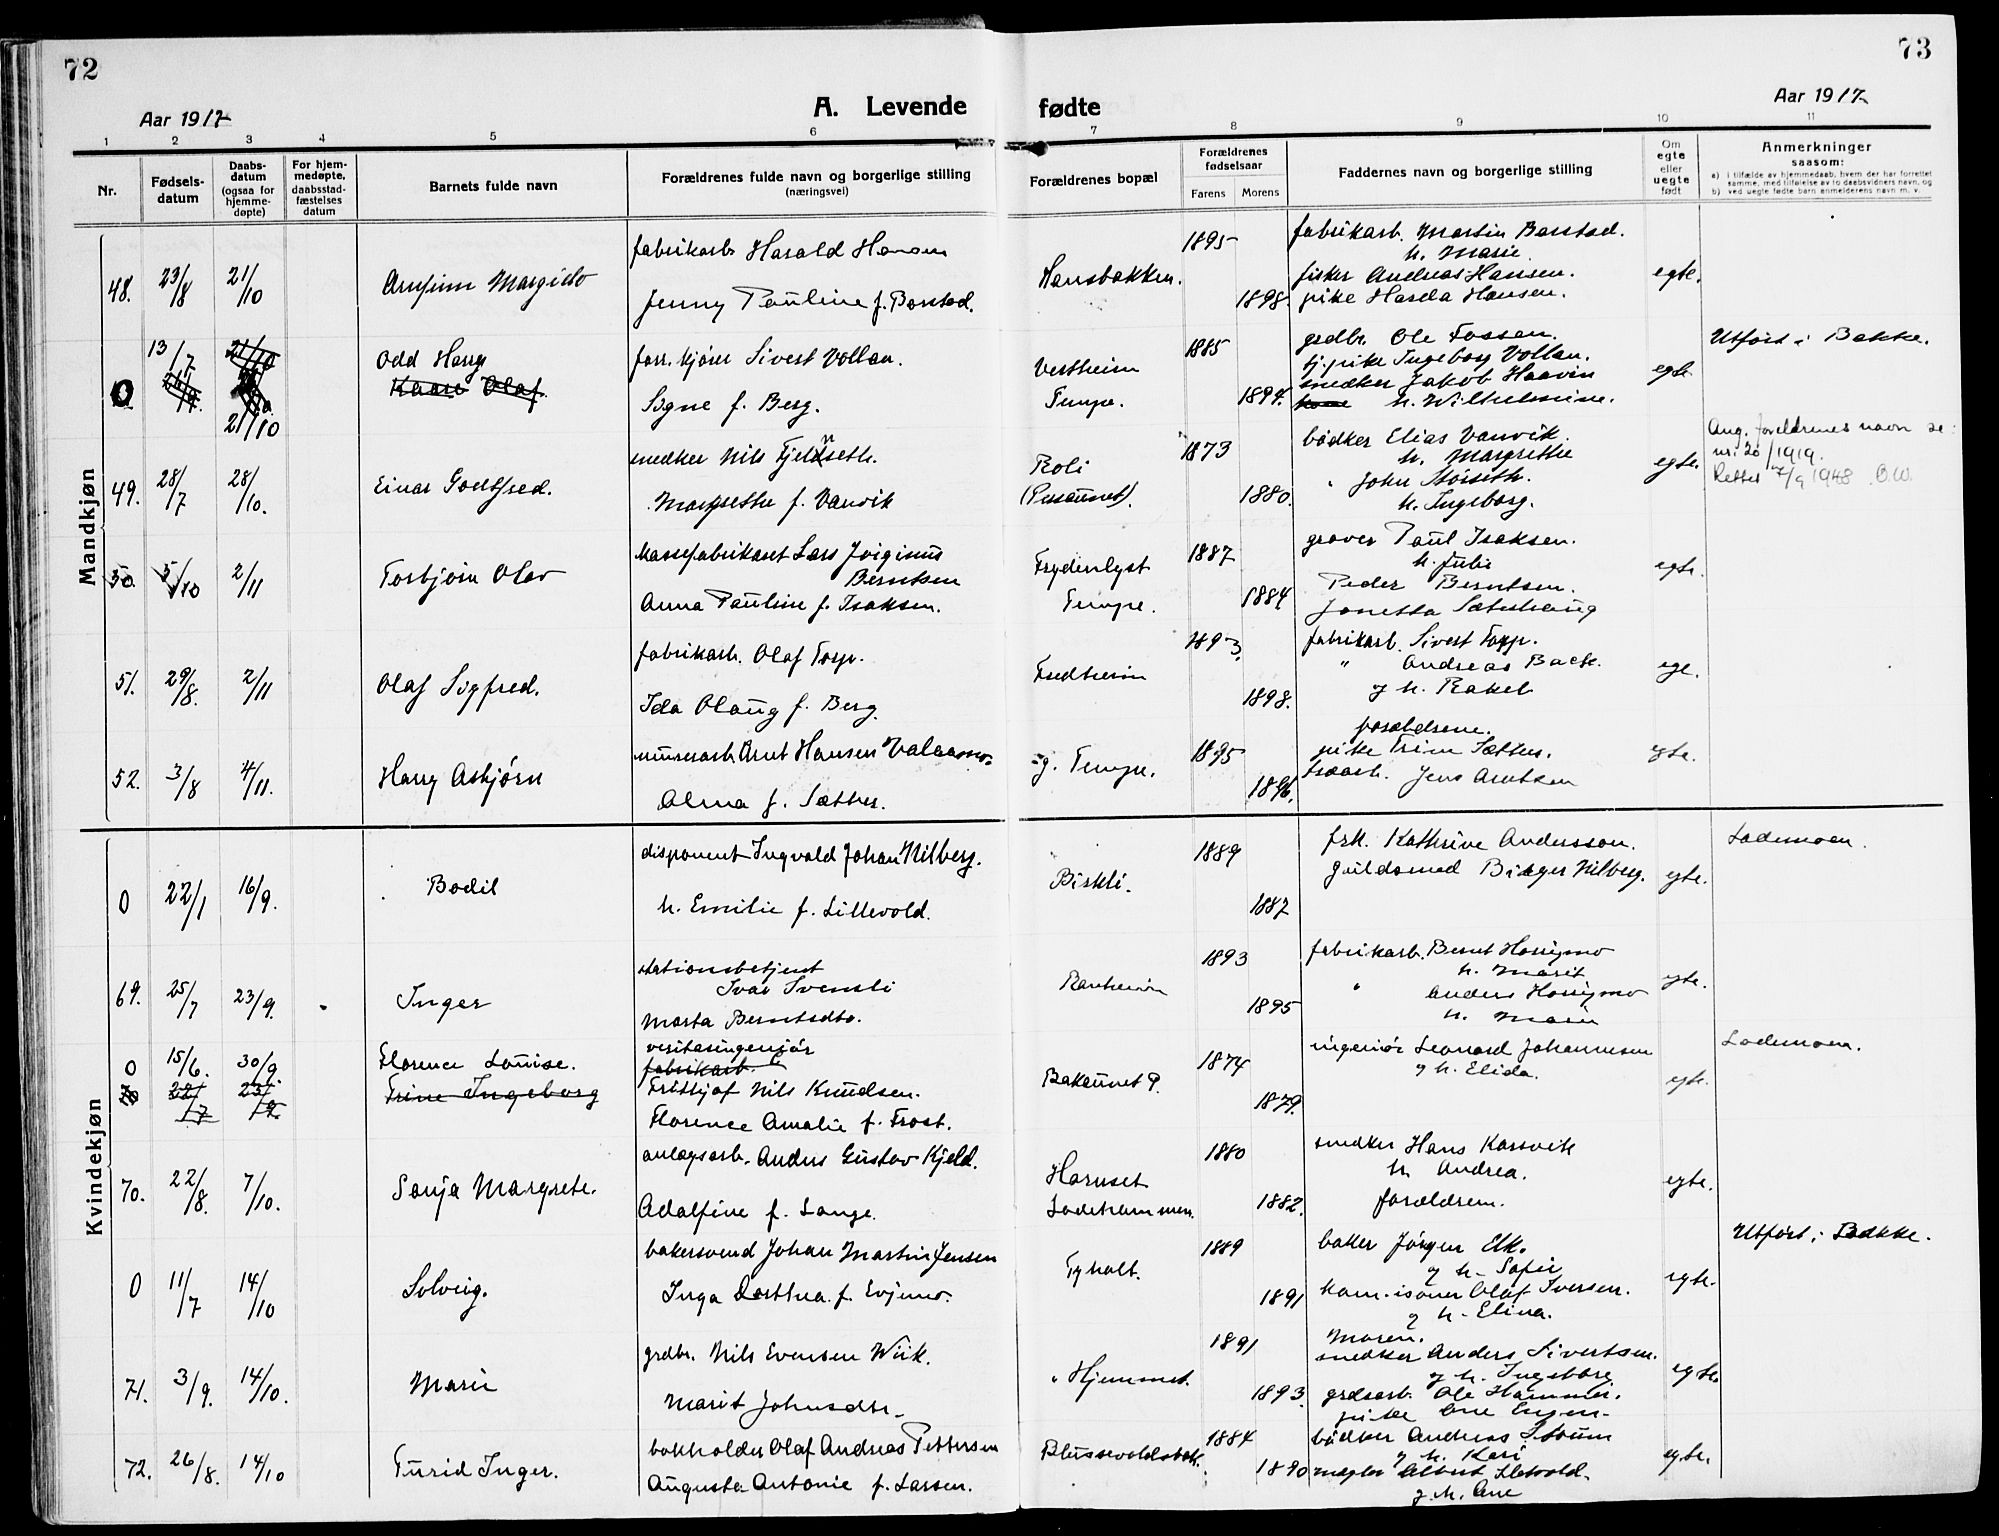 72
73
Aar 1917
A. Levende fødte
Aar 1917
1 2 3 4 5 6 7 8 9 10 11
Nr.
Fødsels-
datum
Daabs-
datum
(ogsaa for
hjemme-
døpte)
For hjem-
medøpte,
daabsstad-
fæstelses
datum
Barnets fulde navn
Forældrenes fulde navn og borgerlige stilling
(næringsvei)
Forældrenes bopæl
Forældrenes
fødselsaar
Farens Morens
Faddernes navn og borgerlige stilling
Om
egte
eller
uegte
født
Anmerkninger
saasom:
a) i tilfælde av hjemmedaab, hvem der har forrettet
samme, med tilføielse av to daabsvidners navn, og
b) ved uegte fødte barn anmelderens navn m. v.
Mandkjøn
48. 23/8 21/10
Arnfinn
fabrikarb. Harald Hansen
Jenny Pauline f. Barstad.
Hansbakken.
1895
1898.
fabrikarb. Martin Barstad.
h. Marie.
fisker Andreas Hansen.
pike Harda Hansen.
egte.
0 13/7 21/10
Odd Harry
Kaare Olaf.
forr.kjører Sivert Vollan.
Signe f. Berg.
Vestheim
Tempe.
1885
1894.
grdbr. Ole Fossen.
tj.pike Ingeborg Vollan.
snedker Jakob Haavin
h. Wilhelmine.
egte
Utført i Bakke.
49. 28/7 28/10.
Einar Godtfred.
snedker Nils Fjeldseth.
Margrethe f. Vanvik
Roli
(Persaunet).
1873
1880.
bødker Elias Vanvik.
h. Margrethe
" John Størseth.
h. Ingeborg.
egte.
Ang. foreldrenes navn se:
nr. 20/1919.
Rettet 7/9 1948 O.W.
50. 5/10 2/11
Torbjørn Olav
Massefabrikarb. Lars Berntsen
Anna Pauline f. Isaksen.
Frydenlyst
Tempe.
1887
1884
graver Paul Isaksen.
h. Julie
Peder Berntsen.
Janetta
egte.
51. 29/8. 2/11
Olaf Sigfred.
fabrikarb. Olaf Torp.
Ida Olaug f. Berg.
Fredheim
1893.
1898.
fabrikarb. Sivert Torp.
" Andreas Back.
og h. Rakel
egte.
52. 3/8 4/11.
Harry Asbjørn
murerarb. Arnt Hansen
Alma f. Sæther.
Tempe.
1895
1896.
forældrene.
pike Trine Sæther.
træarb. Jens Arntsen
egte.
Kvindekjøn
0 22/1 16/9.
Bodil
disponent Ingvald Johan Hilberg.
h. Emilie f. Lillevold.
Birkli.
1889
1887
frk. Kathrine Andersson.
guldsmed Birger Hilberg.
egte.
Lademoen.
69. 25/7 23/9.
Inger
stationsbetjent
Ivar Svensli
Marta Berntsdtr.
Ranheim
1893
1895
fabrikarb. Bernt
h. Marit
" Anders
h. Marie
egte.
0 15/6. 30/9.
Florence Louise.
70 22/7 23/9.
Trine Ingeborg
veritasingeniør
fabrikarb.
Frithjof Nils Knudsen.
Florence Amalie f. Frost.
Bakaunet 9.
1874
1879.
ingeniør Leonard Johannesen
og h. Elida.
egte.
Lademoen.
70. 22/8. 7/10.
Sonja Margrete.
anlægsarb. Anders Gustav Kjeld.
Adolfine f. Lange.
Haruset
Ladehammeren.
1880
1882.
snedker Hans Karsvik
h. Andrea.
forældrene.
egte.
0 11/7 14/10
Solveig.
bakersvend Johan Martin Jensen
Inga Dorthea f. Evjemo.
Tyholt.
1889
1891
baker Jørgen Elk.
og h. Sofie
Olaf Iversen.
og h. Elina.
egte.
Utført i Bakke.
71. 3/9. 14/10.
Marie
grdbr. Nils Evensen Wiik.
Marit Johnsdtr.
Hjemmet.
1891
1893.
Maren.
snedker Anders Sivertsen.
og h. Ingeborg
grdsarb. Ole Hammer.
pike Ane Engen.
egte.
72. 26/8. 14/10
Turid Inger.
bokholder Olaf Andreas Pettersen
Augusta Antonie f. Larsen.
Blussevoldsbak.
1884
1890
bødker Andreas Straum
og h. Kari
mægler Albert
og h. Ane
egte.